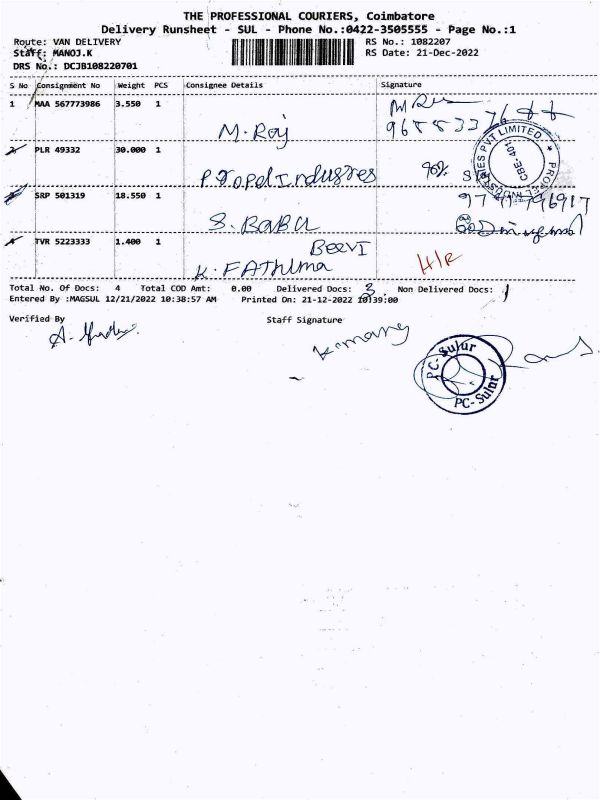 THE PROFESSIONAL COURIERS, Coimbatore
Delivery Runsheet - SUL - Phone No.:0422-3505555 - Page No.:1
Route: VAN DELIVERY RS No.: 1082207
Staff: MANOJ.K RS Date: 21-Dec-2022
DRS No.: DCJB108220701
S No Consignment No Weight PCS Consignee Details Signature
1 MAA 567773986 3.550 1
M. Roj
2 PLR 49332 30.000 1
P.ropel Industres
3 SRP 501319 18.550 1
S. BABU
4 TVR 5223333 1.400 1
BEEVI
K. FATHIma H/R
Total No. Of Docs: 4 Total COD Amt: 0.00 Delivered Docs: 3 Non Delivered Docs: 1
Entered By :MAGSUL 12/21/2022 10:38:57 AM Printed On: 21-12-2022 10:39:00
Verified By Staff Signature
K. manoj
PC-Sulur
PC-Sulur